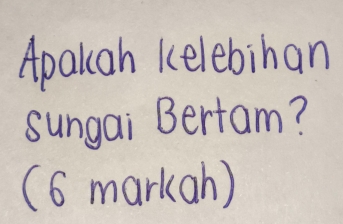 Apakah kelebihan
sungai Bertam?
(6 markah)